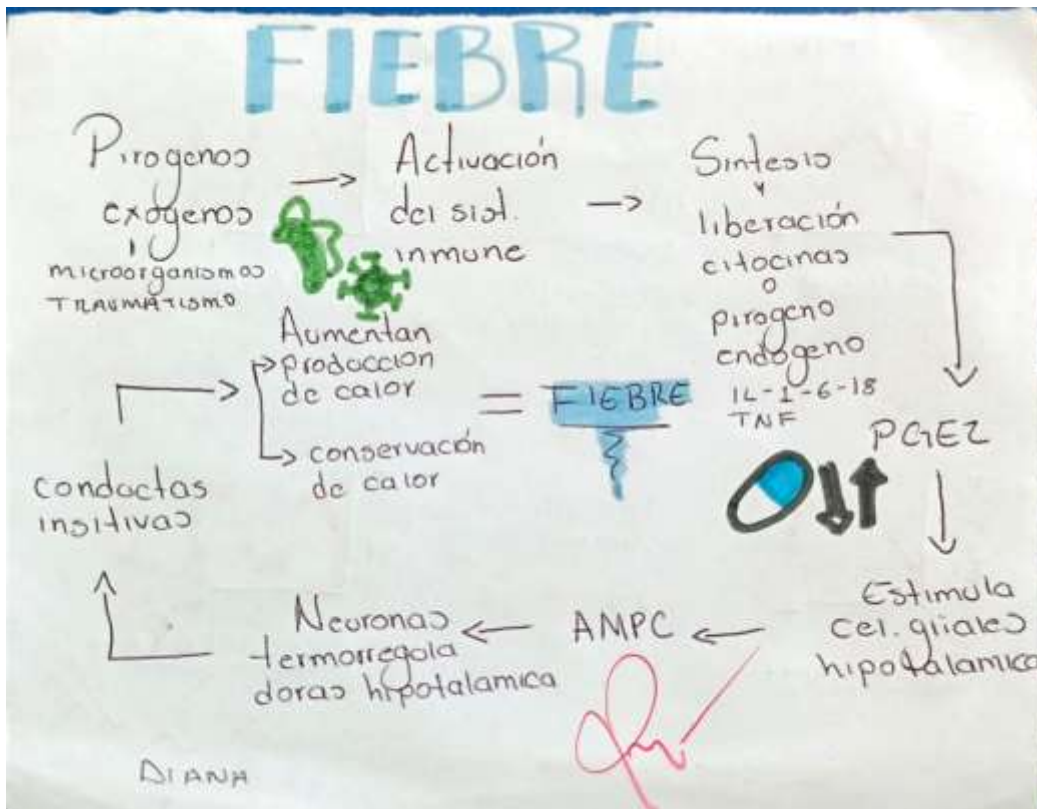 FIEBRE
Pirogenos
exogenos
microorganismos
TRAUMATISMO
Activación
del sist.
inmune
Sintesis
y
liberación
citocinas
o
pirogeno
endogeno
IL-1-6-18
TNF
PGE2
Estimula
cel. gliales
hipotalamica
AMPC
Neuronas
termorregola
doras hipotalamica
conductas
insitivas
Aumentan
produccion
de calor
conservación
de calor
=
FIEBRE
DIANA